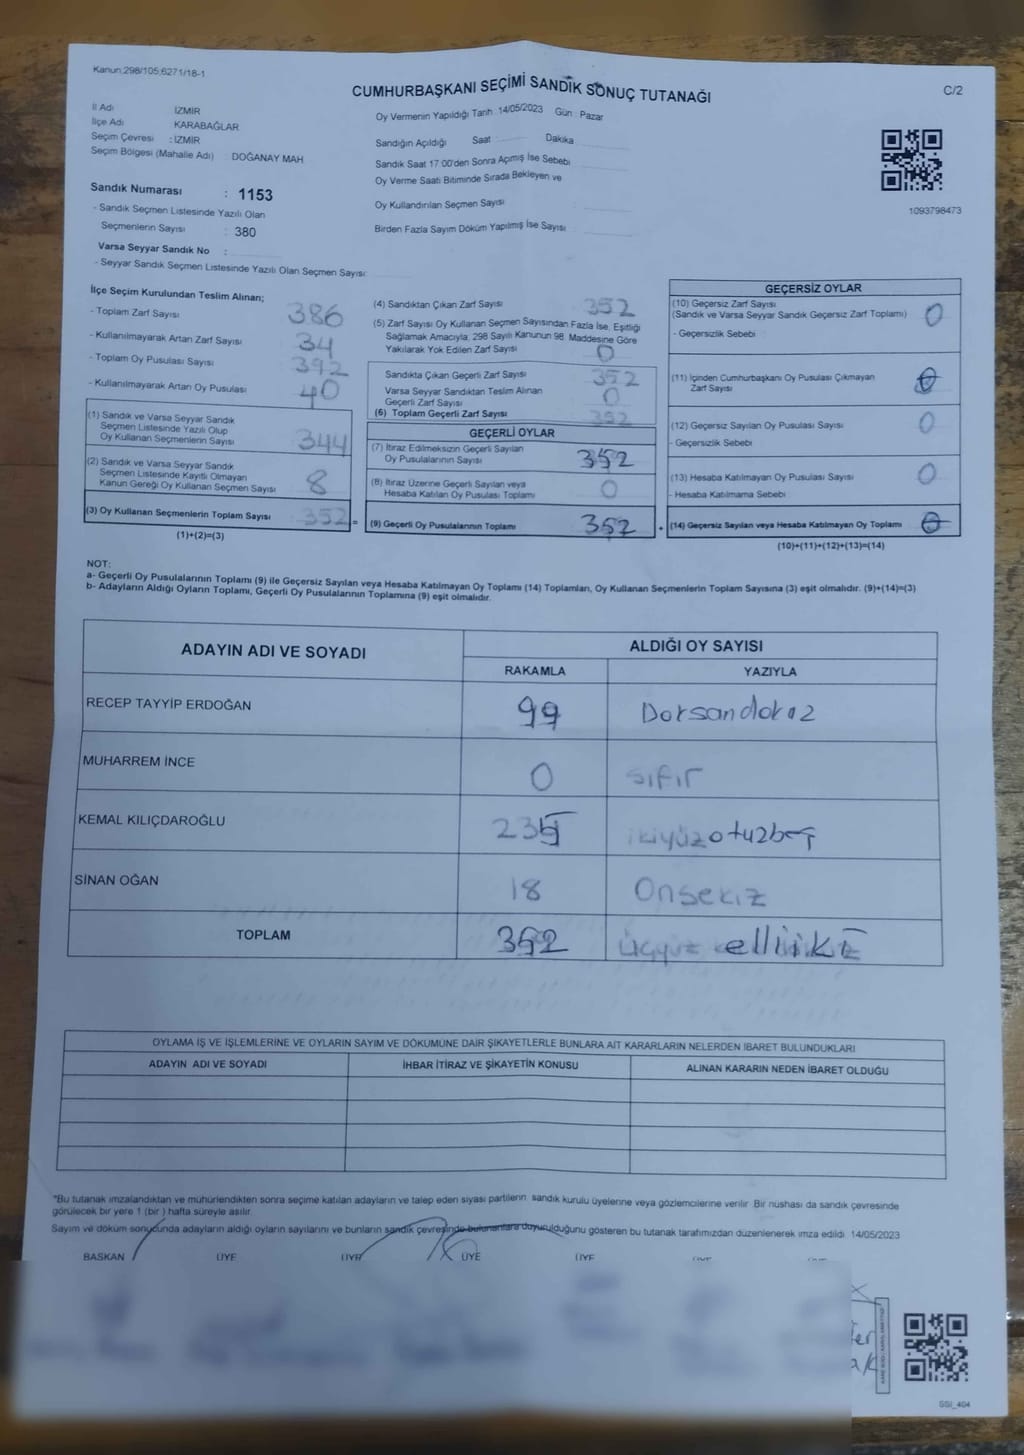 Kanun,298/105,6271/18-1
CUMHURBAŞKANI SEÇİMİ SANDIK SONUÇ TUTANAĞI
C/2
İl Adı İZMİR
İlçe Adı KARABAĞLAR
Seçim Çevresi : İZMİR
Seçim Bölgesi (Mahalle Adı) DOĞANAY MAH.
Oy Vermenin Yapıldığı Tarih :14/05/2023 Gün : Pazar
Sandığın Açıldığı Saat Dakika
Sandık Saat 17:00'den Sonra Açımış İse Sebebi
Oy Verme Saati Bitiminde Sırada Bekleyen ve
Oy Kullandırılan Seçmen Sayısı
Birden Fazla Sayım Döküm Yapılmış İse Sayısı
1093798473
Sandık Numarası : 1153
- Sandık Seçmen Listesinde Yazılı Olan
Seçmenlerin Sayısı : 380
Varsa Seyyar Sandık No :
- Seyyar Sandık Seçmen Listesinde Yazılı Olan Seçmen Sayısı:
İlçe Seçim Kurulundan Teslim Alınan;
- Toplam Zarf Sayısı 386
- Kullanılmayarak Artan Zarf Sayısı 34
- Toplam Oy Pusulası Sayısı 392
- Kullanılmayarak Artan Oy Pusulası 40
(1) Sandık ve Varsa Seyyar Sandık
Seçmen Listesinde Yazılı Olup
Oy Kullanan Seçmenlerin Sayısı 344
(2) Sandık ve Varsa Seyyar Sandık
Seçmen Listesinde Kayıtlı Olmayan
Kanun Gereği Oy Kullanan Seçmen Sayısı 8
(3) Oy Kullanan Seçmenlerin Toplam Sayısı 352 =
(1)+(2)=(3)
(4) Sandıktan Çıkan Zarf Sayısı 352
(5) Zarf Sayısı Oy Kullanan Seçmen Sayısından Fazla İse, Eşitliği
Sağlamak Amacıyla, 298 Sayılı Kanunun 98. Maddesine Göre
Yakılarak Yok Edilen Zarf Sayısı 0
Sandıkta Çıkan Geçerli Zarf Sayısı 352
Varsa Seyyar Sandıktan Teslim Alınan
Geçerli Zarf Sayısı 0
(6) Toplam Geçerli Zarf Sayısı 352
GEÇERLİ OYLAR
(7) İtiraz Edilmeksizin Geçerli Sayılan
Oy Pusulalarının Sayısı 352
(8) İtiraz Üzerine Geçerli Sayılan veya
Hesaba Katılan Oy Pusulası Toplamı 0
(9) Geçerli Oy Pusulalarının Toplamı 352 +
GEÇERSİZ OYLAR
(10) Geçersiz Zarf Sayısı 0
(Sandık ve Varsa Seyyar Sandık Geçersiz Zarf Toplamı)
- Geçersizlik Sebebi
(11) İçinden Cumhurbaşkanı Oy Pusulası Çıkmayan
Zarf Sayısı
(12) Geçersiz Sayılan Oy Pusulası Sayısı 0
- Geçersizlik Sebebi
(13) Hesaba Katılmayan Oy Pusulası Sayısı 0
- Hesaba Katılmama Sebebi
(14) Geçersiz Sayılan veya Hesaba Katılmayan Oy Toplamı
(10)+(11)+(12)+(13)=(14)
NOT:
a- Geçerli Oy Pusulalarının Toplamı (9) ile Geçersiz Sayılan veya Hesaba Katılmayan Oy Toplamı (14) Toplamları, Oy Kullanan Seçmenlerin Toplam Sayısına (3) eşit olmalıdır. (9)+(14)=(3)
b- Adayların Aldığı Oyların Toplamı, Geçerli Oy Pusulalarının Toplamına (9) eşit olmalıdır.
ADAYIN ADI VE SOYADI ALDIĞI OY SAYISI
RAKAMLA YAZIYLA
RECEP TAYYİP ERDOĞAN 99 Doksandokuz
MUHARREM İNCE 0 sıfır
KEMAL KILIÇDAROĞLU 235 ikiyüzotuzbeş
SİNAN OĞAN 18 Onsekiz
TOPLAM 352 Üçyüz elliiki
OYLAMA İŞ VE İŞLEMLERİNE VE OYLARIN SAYIM VE DÖKÜMÜNE DAİR ŞİKAYETLERLE BUNLARA AİT KARARLARIN NELERDEN İBARET BULUNDUKLARI
ADAYIN ADI VE SOYADI İHBAR İTİRAZ VE ŞİKAYETİN KONUSU ALINAN KARARIN NEDEN İBARET OLDUĞU
*Bu tutanak imzalandıktan ve mühürlendikten sonra seçime katılan adayların ve talep eden siyasi partilerin sandık kurulu üyelerine veya gözlemcilerine verilir. Bir nüshası da sandık çevresinde
görülecek bir yere 1 (bir ) hafta süreyle asılır.
Sayım ve döküm sonucunda adayların aldığı oyların sayılarını ve bunların sandık çevresinde bulunanlara duyurulduğunu gösteren bu tutanak tarafımızdan düzenlenerek imza edildi. 14/05/2023
BAŞKAN ÜYE ÜYE ÜYE ÜYE
SSI_404